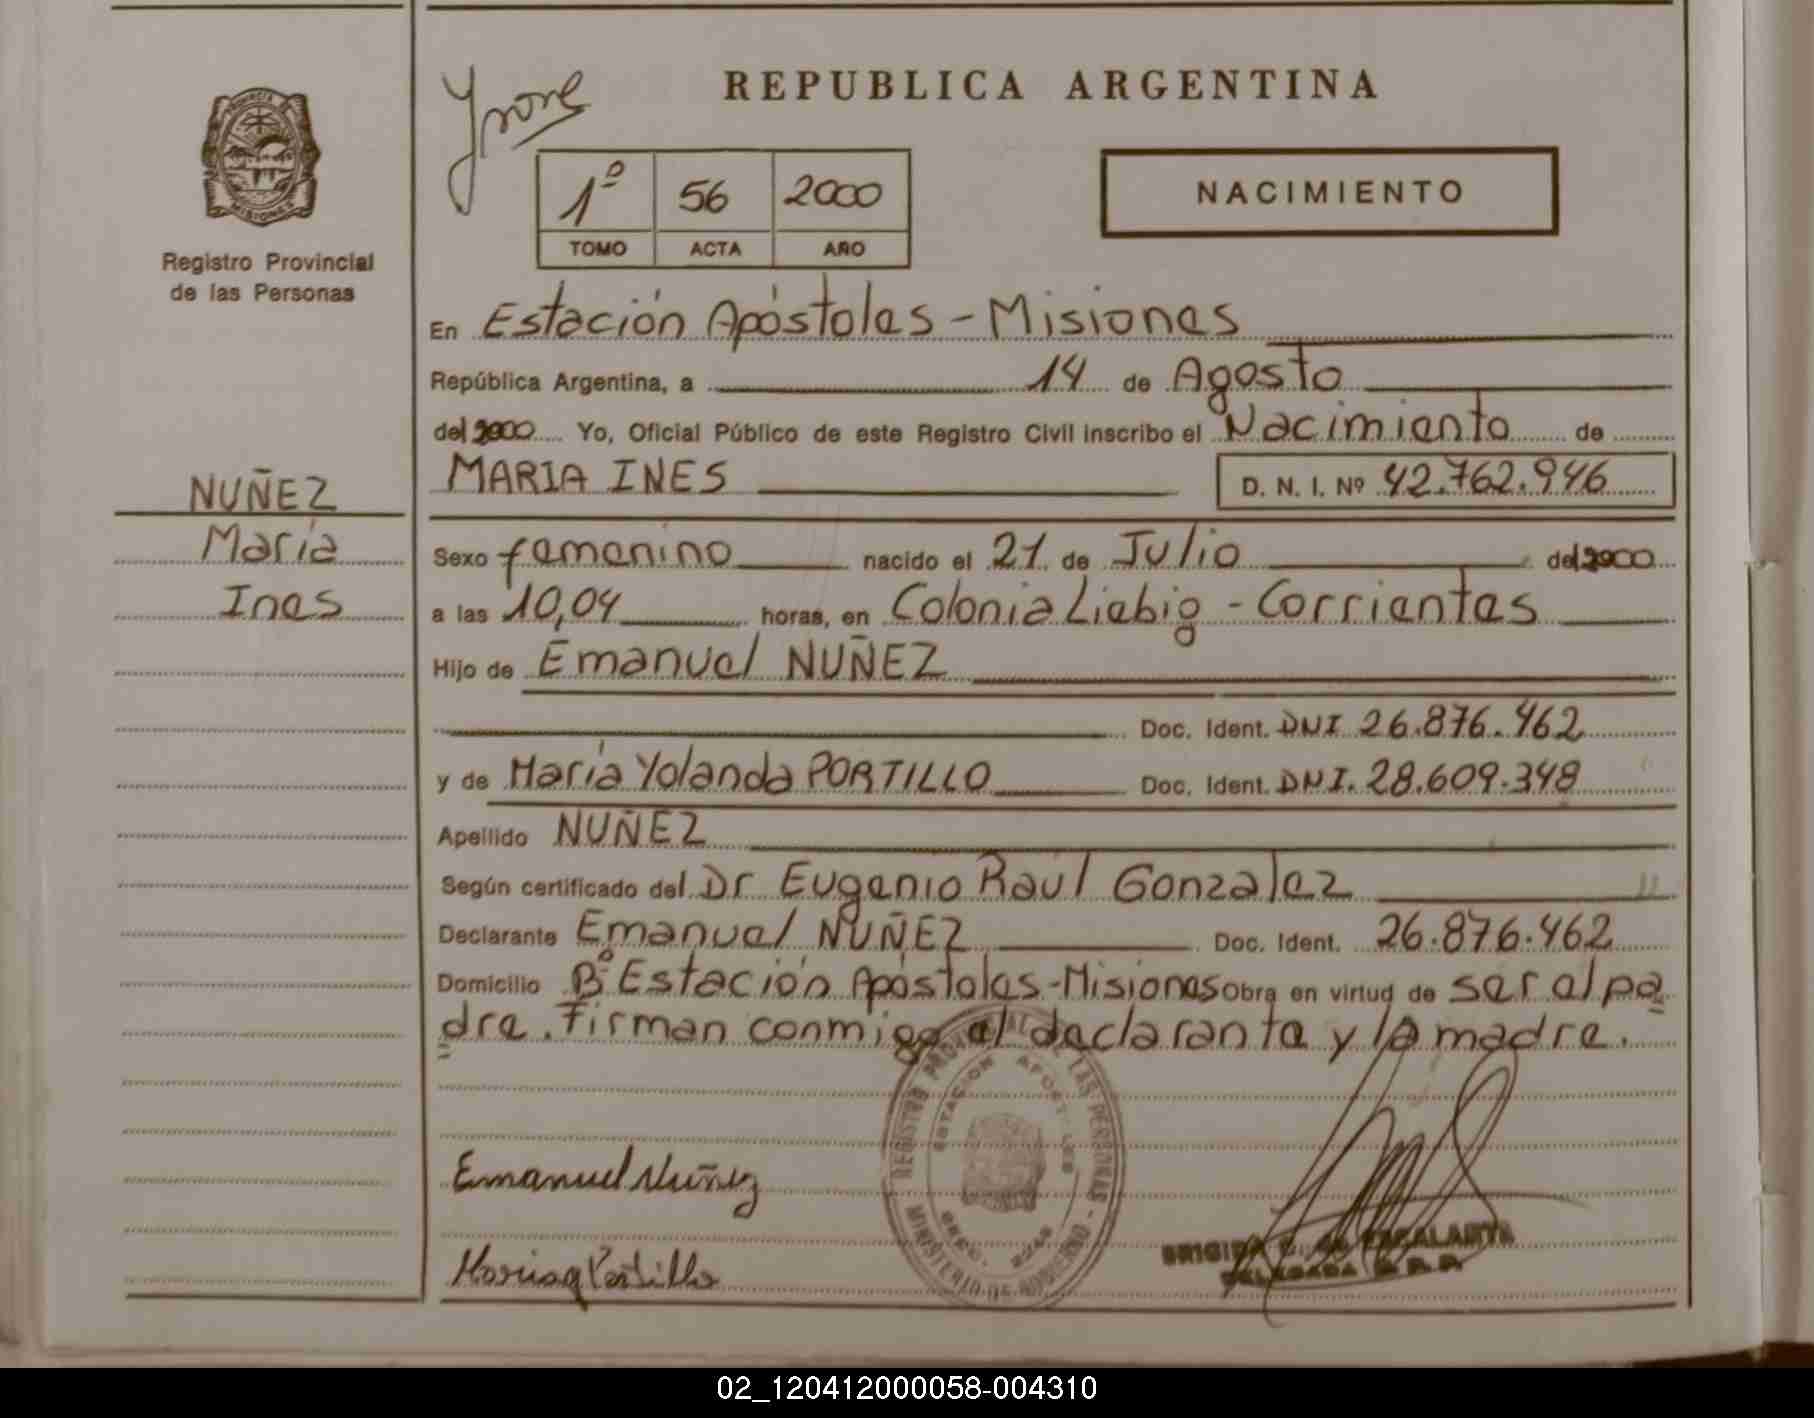 REPUBLICA ARGENTINA
PROVINCIA DE
MISIONES
Registro Provincial
de las Personas
1º 56 2000
TOMO ACTA AÑO
NACIMIENTO
En Estación Apóstoles - Misiones
República Argentina, a 14 de Agosto
del 2000 Yo, Oficial Público de este Registro Civil inscribo el Nacimiento de
MARIA INES D. N. I. Nº 42.762.946
NUÑEZ
María
Ines
Sexo femenino nacido el 21 de Julio del 2000
a las 10,04 horas, en Colonia Liebig - Corrientes
Hijo de Emanuel NUÑEZ
Doc. Ident. DNI 26.876.462
y de María Yolanda PORTILLO Doc. Ident. DNI. 28.609.348
Apellido NUÑEZ
Según certificado del Dr Eugenio Raúl Gonzalez
Declarante Emanuel NUÑEZ Doc. Ident. 26.876.462
Domicilio Bº Estación Apóstoles-Misiones Obra en virtud de ser el pa
dre. Firman conmigo el declarante y la madre.
REGISTRO PROVINCIAL DE LAS PERSONAS
ESTACION APOSTOLES
MINISTERIO DE GOBIERNO
Emanuel Nuñez
Maria Portillo
BRIGIDA C. de ESCALANTE
DELEGADA R.P.P.
02_120412000058-004310